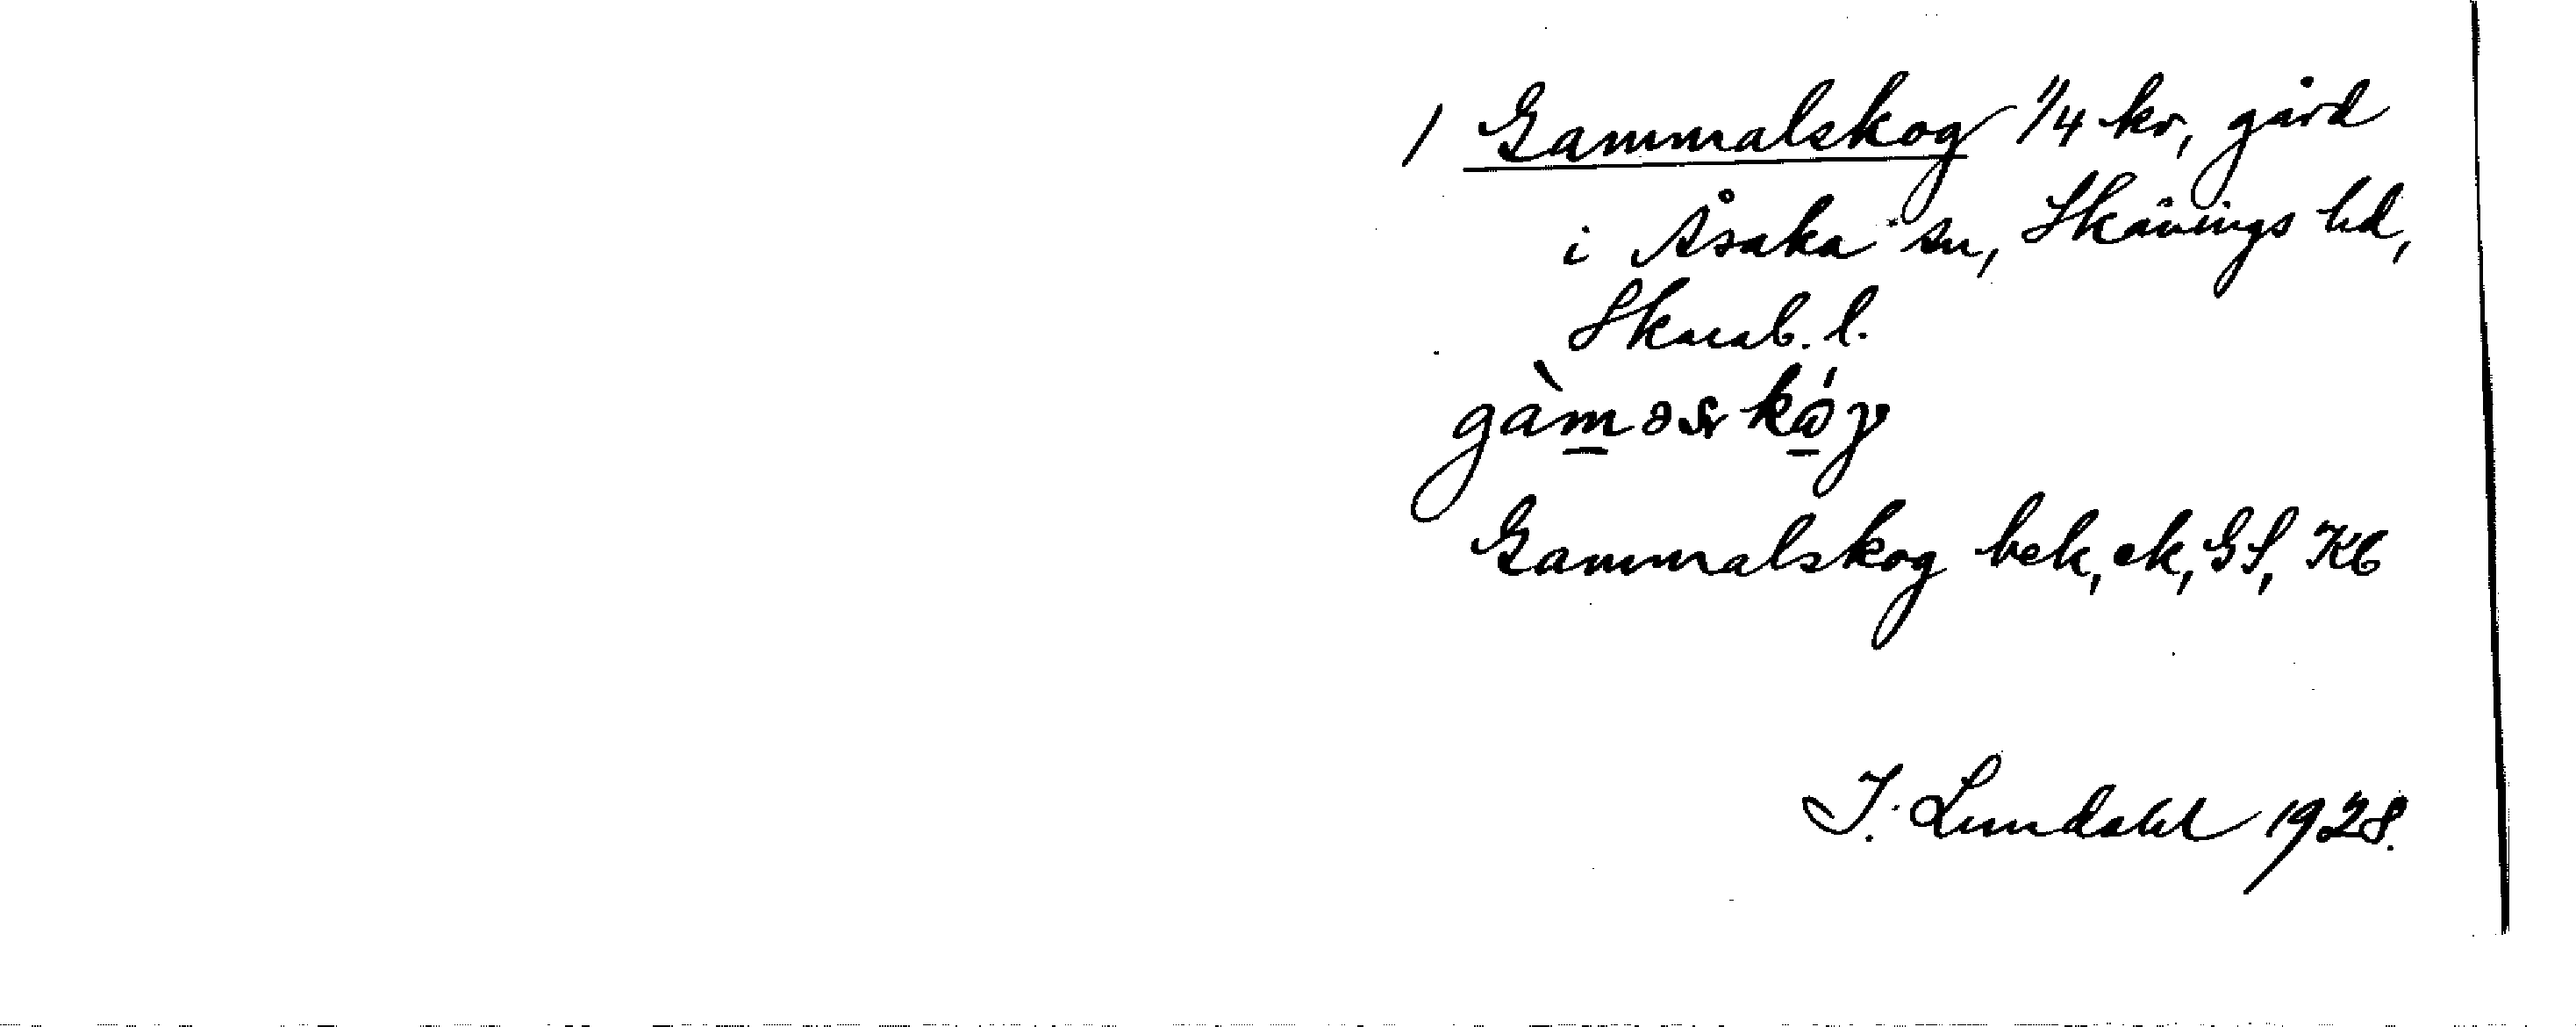 1 Gammalskog 1/4 kr, gård
i Åsaka sn, Skånings hd,
Skarab. l.
gàməskóγ
Gammalskog bek, ek, GS, Kb
I. Lundahl 1928.